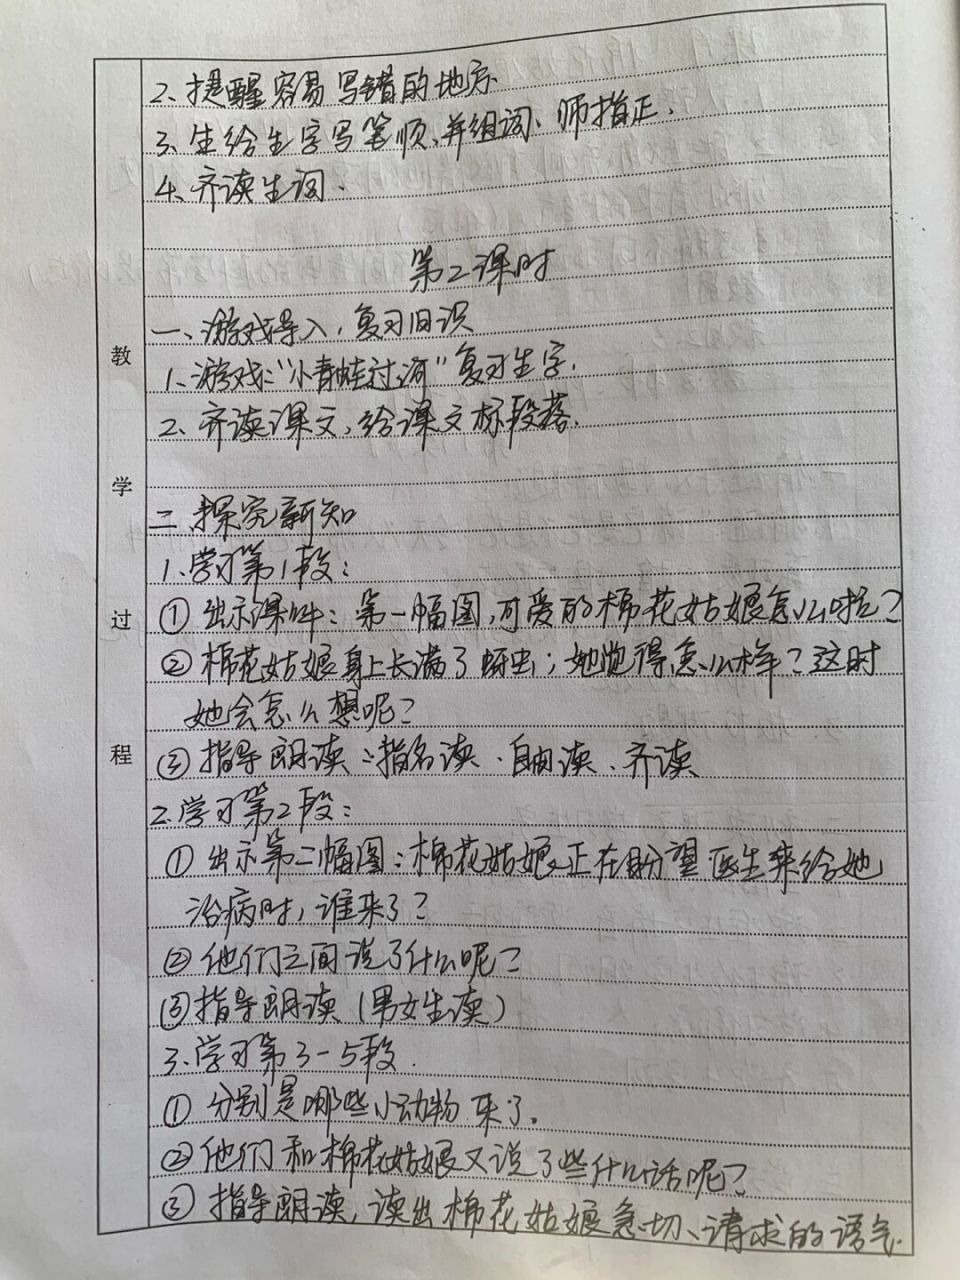 2、提醒容易写错的地方
3、生给生字写笔顺,并组词、师指正.
4、齐读生词.
第二课时
一、游戏导入,复习旧识
1、游戏:"小青蛙过河"复习生字.
2、齐读课文,给课文标段落.
二、探究新知
1、学习第1段:
①出示课件:第一幅图,可爱的棉花姑娘怎么啦?
②棉花姑娘身上长满了蚜虫;她觉得怎么样?这时
她会怎么想呢?
③指导朗读:指名读、自由读、齐读
2、学习第2段:
①出示第二幅图:棉花姑娘正在盼望医生来给她
治病时,谁来了?
②他们之间说了什么呢?
③指导朗读(男女生读)
3、学习第3-5段.
①分别是哪些小动物来了.
②他们和棉花姑娘又说了些什么话呢?
③指导朗读,读出棉花姑娘急切、请求的语气.
教
学
过
程